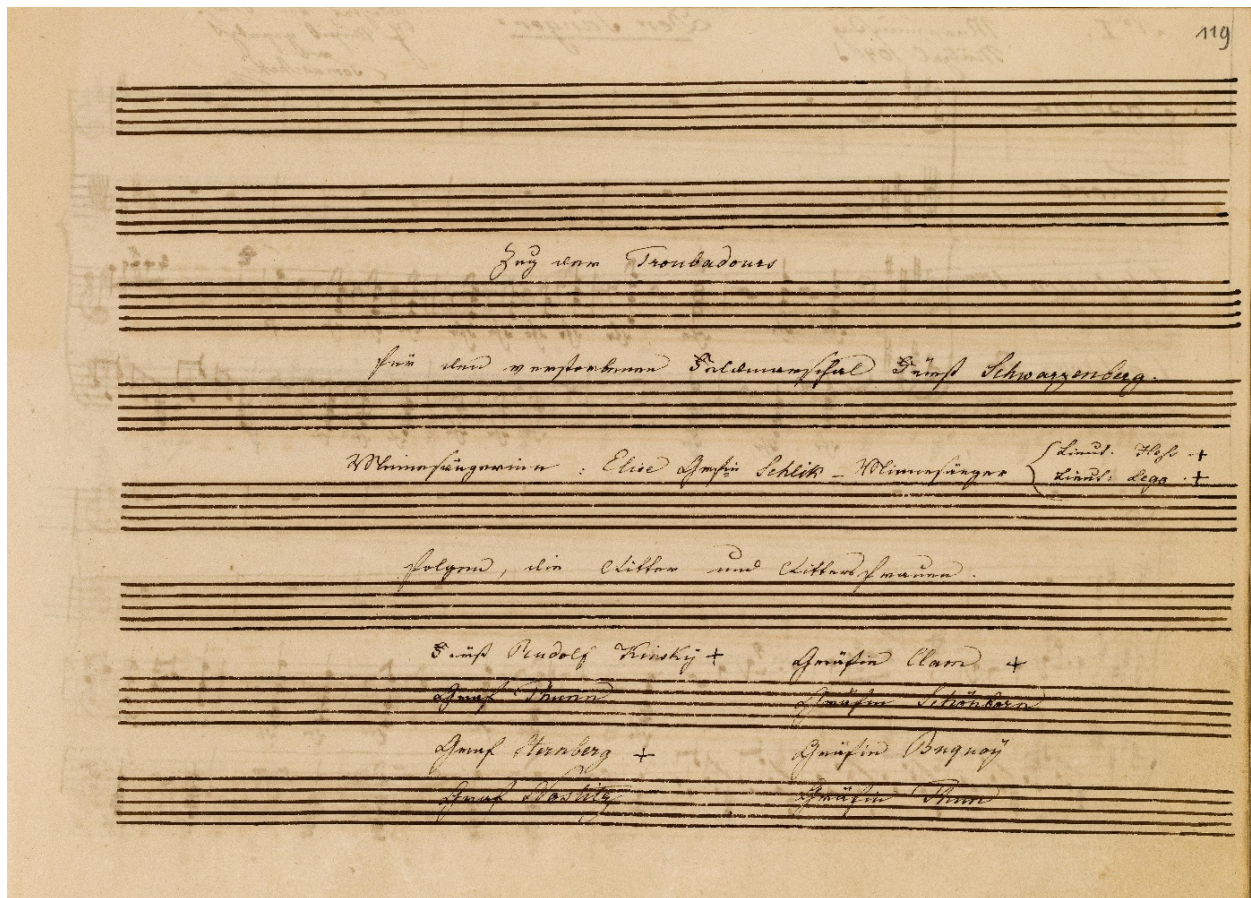 119
Zug der Troubadours
für den verstorbenen Feldmarschal Fürst Schwarzenberg.
Minnesängerinn : Elise Gräfin Schlik – Minnesänger { Lieut:
Lieut:
folgen, die Ritter und Rittersfrauen.
Fürst Rudolf Kinsky + Gräfin Clam +
Graf Thunn Gräfin Schönborn
Graf Sternberg + Gräfin Buquoÿ
Graf Nostitz Gräfin Thun